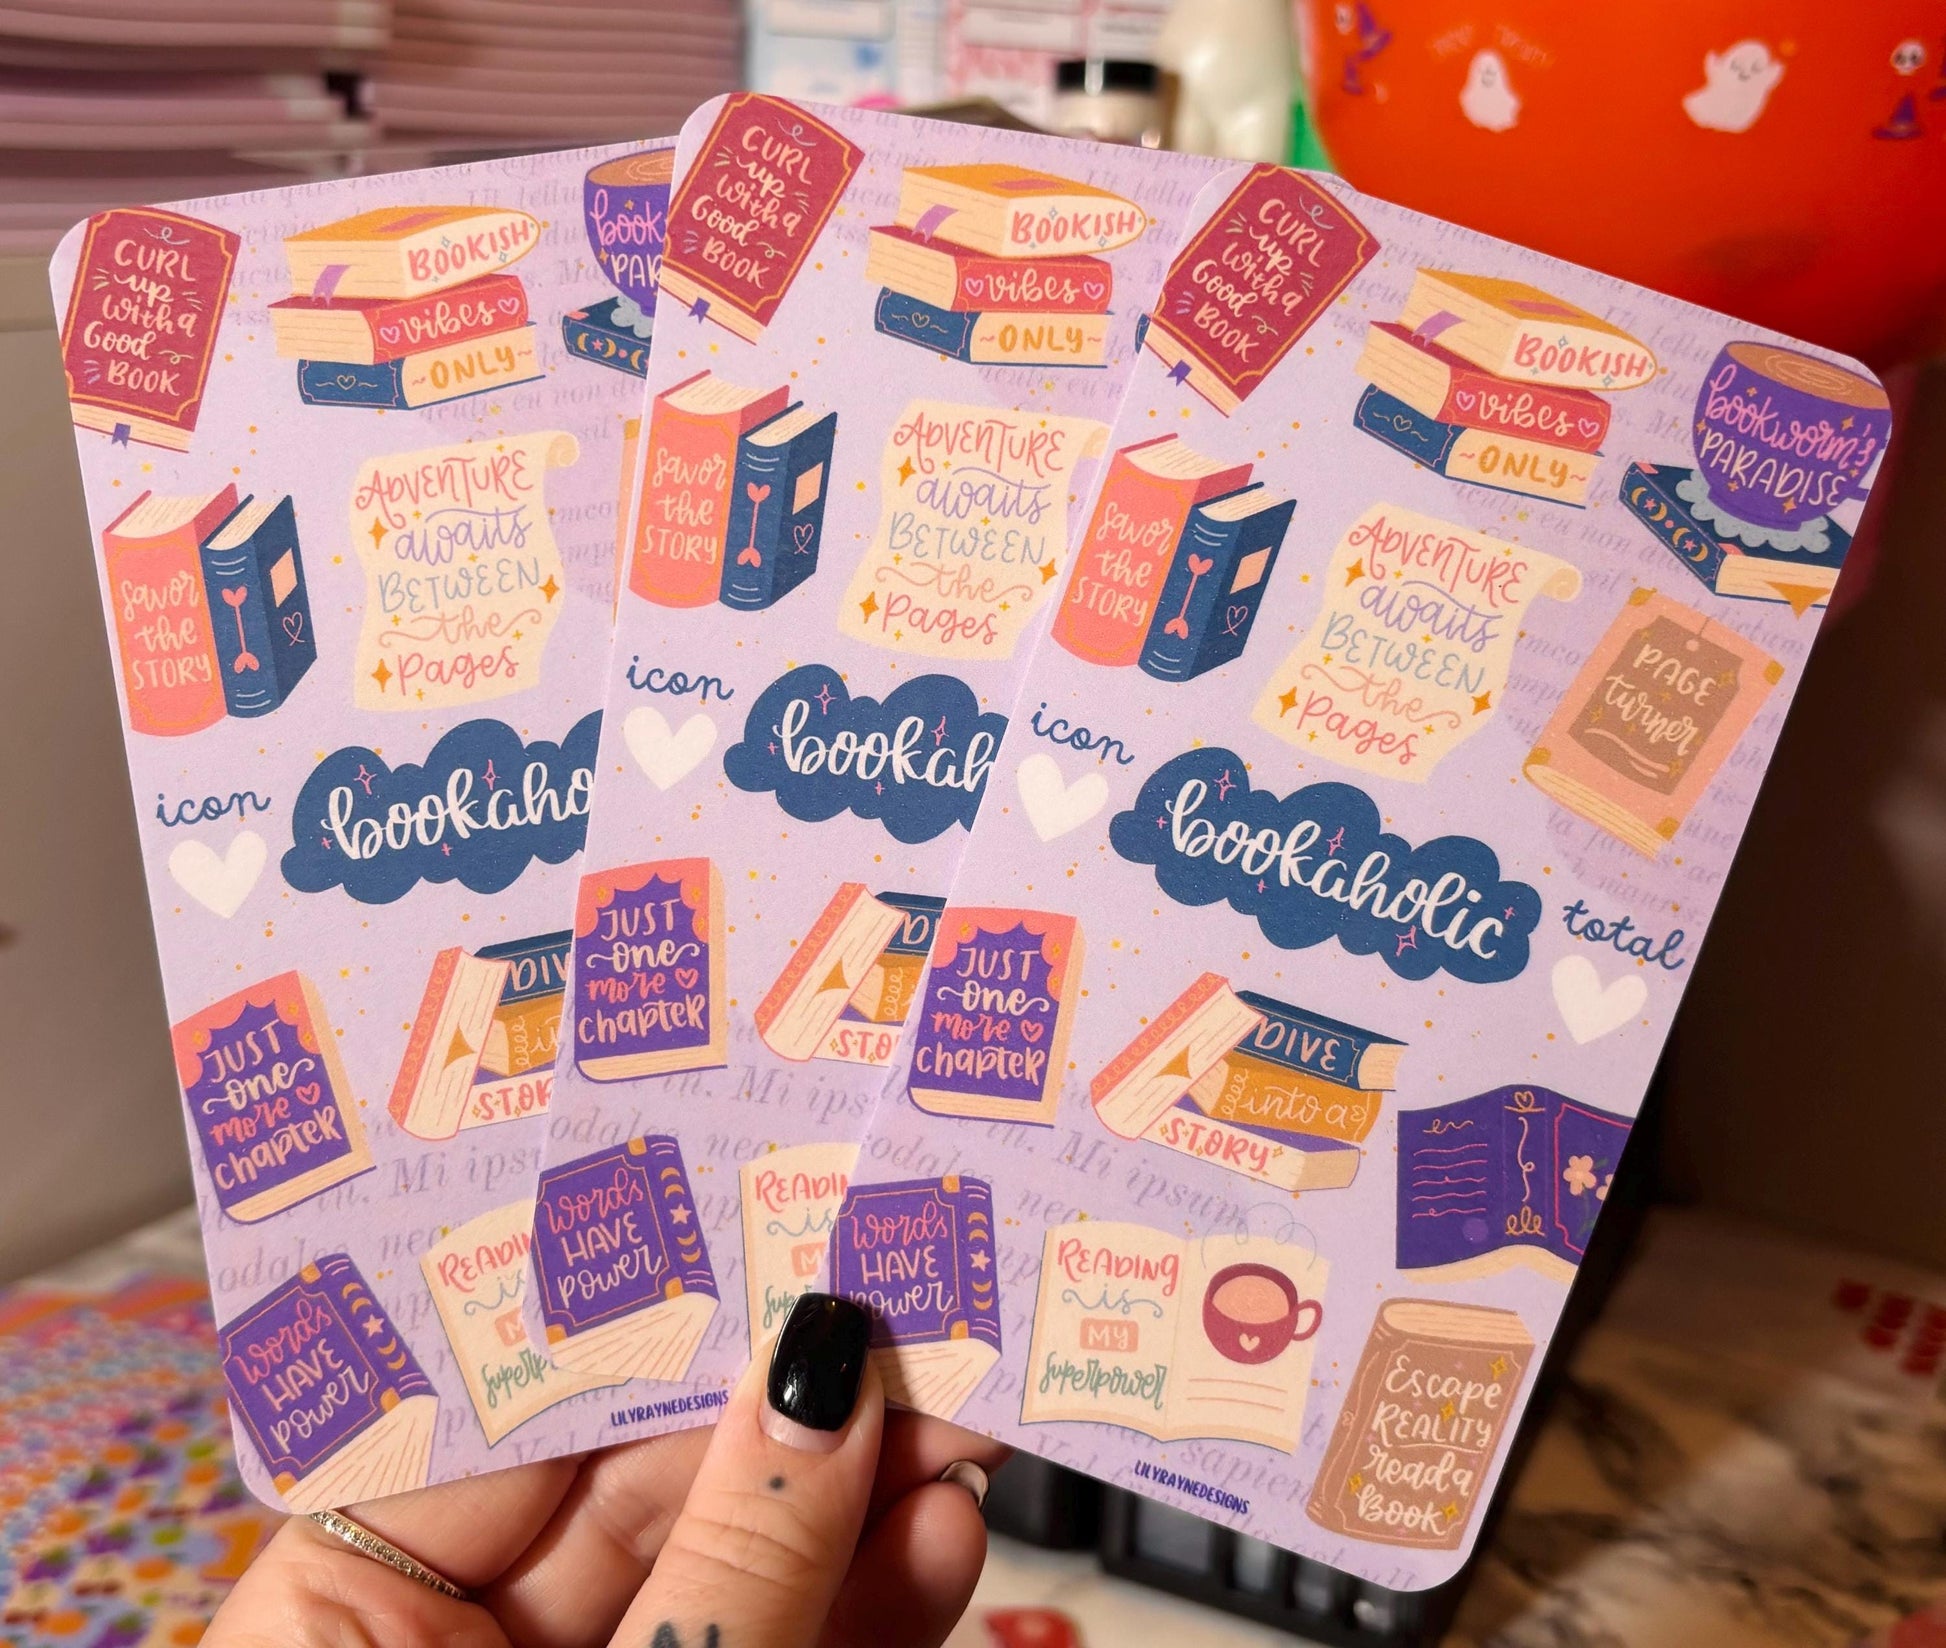 CURL
up
with a
Good
BOOK
BOOKISH
vibes
~ONLY~
book
PAR
savor
the
STORY
ADVENTURE
awaits
BETWEEN
the
pages
icon
bookaho
JUST
one
more
chapter
DIV
STOR
words
HAVE
power
READIN
is
M
superp
LILYRAYNEDESIGNS
CURL
up
with a
Good
BOOK
BOOKISH
vibes
~ONLY~
savor
the
STORY
ADVENTURE
awaits
BETWEEN
the
pages
icon
bookah
JUST
one
more
chapter
D
STO
words
HAVE
power
READIN
is
M
sup
CURL
up
with a
Good
BOOK
BOOKISH
vibes
~ONLY~
bookworm's
PARADISE
savor
the
STORY
ADVENTURE
awaits
BETWEEN
the
pages
PAGE
turner
icon
bookaholic
total
JUST
one
more
chapter
DIVE
into a
STORY
words
HAVE
power
READING
is
MY
superpower
Escape
REALITY
read a
BOOK
LILYRAYNEDESIGNS